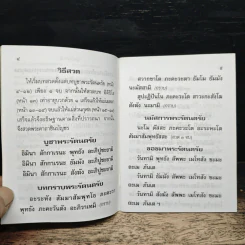 ๔
วิธีสวด
บูชาพระรัตนตรัย
อิมินา สักกาเรนะ พุทธัง อะภิปูชะยามิ
อิมินา สักกาเรนะ ธัมมัง อะภิปูชะยามิ
อิมินา สักกาเรนะ สังฆัง อะภิปูชะยามิ
บทกราบพระรัตนตรัย
อะระหัง สัมมาสัมพุทโธ ภะคะวา
พุทธัง ภะคะวันตัง อะภิวาเทมิ (กราบ)
๕
สวากขาโต ภะคะวะตา ธัมโม ธัมมัง
นะมัสสามิ (กราบ)
สุปะฏิปันโน ภะคะวะโต สาวะกะสังโฆ
สังฆัง นะมามิ (กราบ)
นมัสการพระรัตนตรัย
นะโม ตัสสะ ภะคะวะโต อะระหะโต
สัมมาสัมพุทธัสสะ (กล่าว ๓ จบ)
ขอขมาพระรัตนตรัย
วันทามิ พุทธัง สัพพะ เมโทสัง ขะมะถะ
เม ภันเต
วันทามิ ธัมมัง สัพพะ เมโทสัง ขะมะถะ
เม ภันเต
วันทามิ สังฆัง สัพพะ เมโทสัง ขะมะ
ถะเม ภันเต ฯ